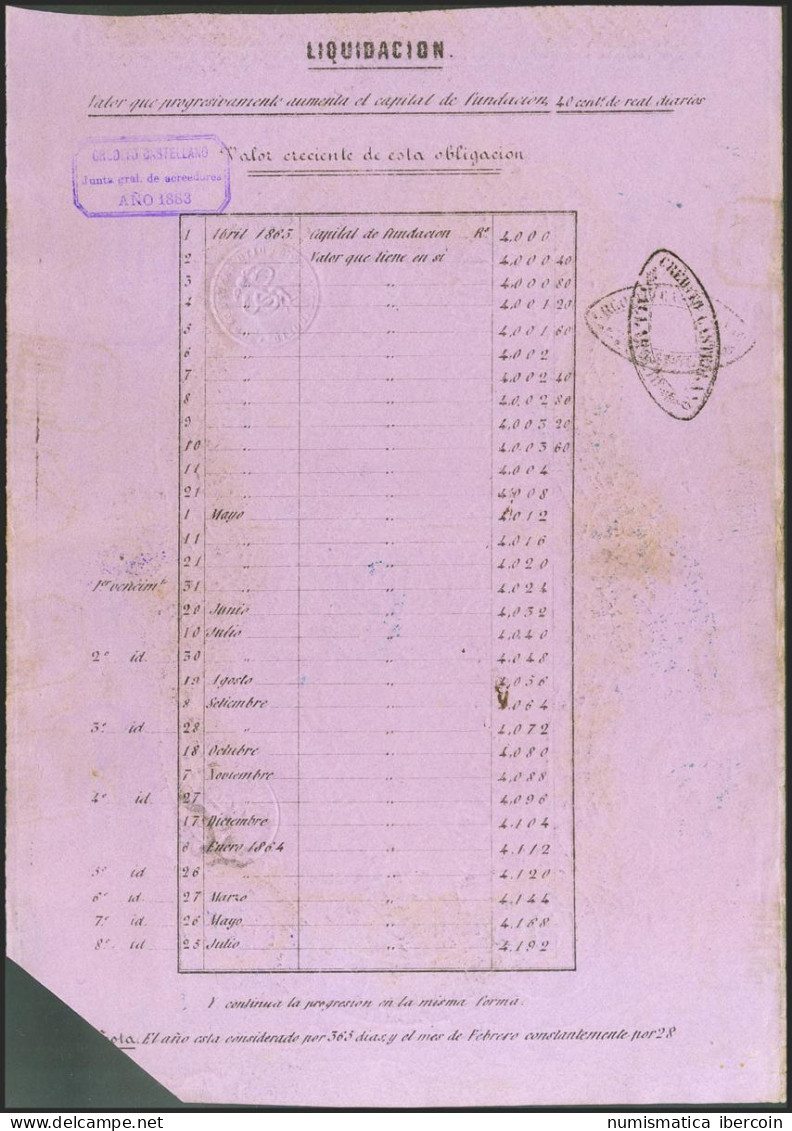 LIQUIDACION.
Valor que progresivamente aumenta el capital de fundacion, 40 cents. de real diarios
Valor creciente de esta obligacion
CREDITO CASTELLANO
Junta gral. de acreedores
AÑO 1883
1 Abril 1863 Capital de fundacion Rs. 4.000
2 " Valor que tiene en si 4.000 40
3 " " 4.000 80
4 " " 4.001 20
5 " " 4.001 60
6 " " 4.002
7 " " 4.002 40
8 " " 4.002 80
9 " " 4.003 20
10 " " 4.003 60
11 " " 4.004
21 " " 4.008
1 Mayo " 4.012
11 " " 4.016
21 " " 4.020
1er vencimto. 31 " " 4.024
20 Junio " 4.032
10 Julio " 4.040
2º id. 30 " " 4.048
19 Agosto " 4.056
8 Setiembre " 4.064
3º id. 28 " " 4.072
18 Octubre " 4.080
7 Noviembre " 4.088
4º id. 27 " " 4.096
17 Diciembre " 4.104
6 Enero 1864 " 4.112
5º id 26 " " 4.120
6º id. 27 Marzo " 4.144
7º id. 26 Mayo " 4.168
8º id. 25 Julio " 4.192
CREDITO CASTELLANO
Y continua la progresion en la misma forma.
Nota. El año esta considerado por 365 dias, y el mes de Febrero constantemente por 28
numismatica ibercoin